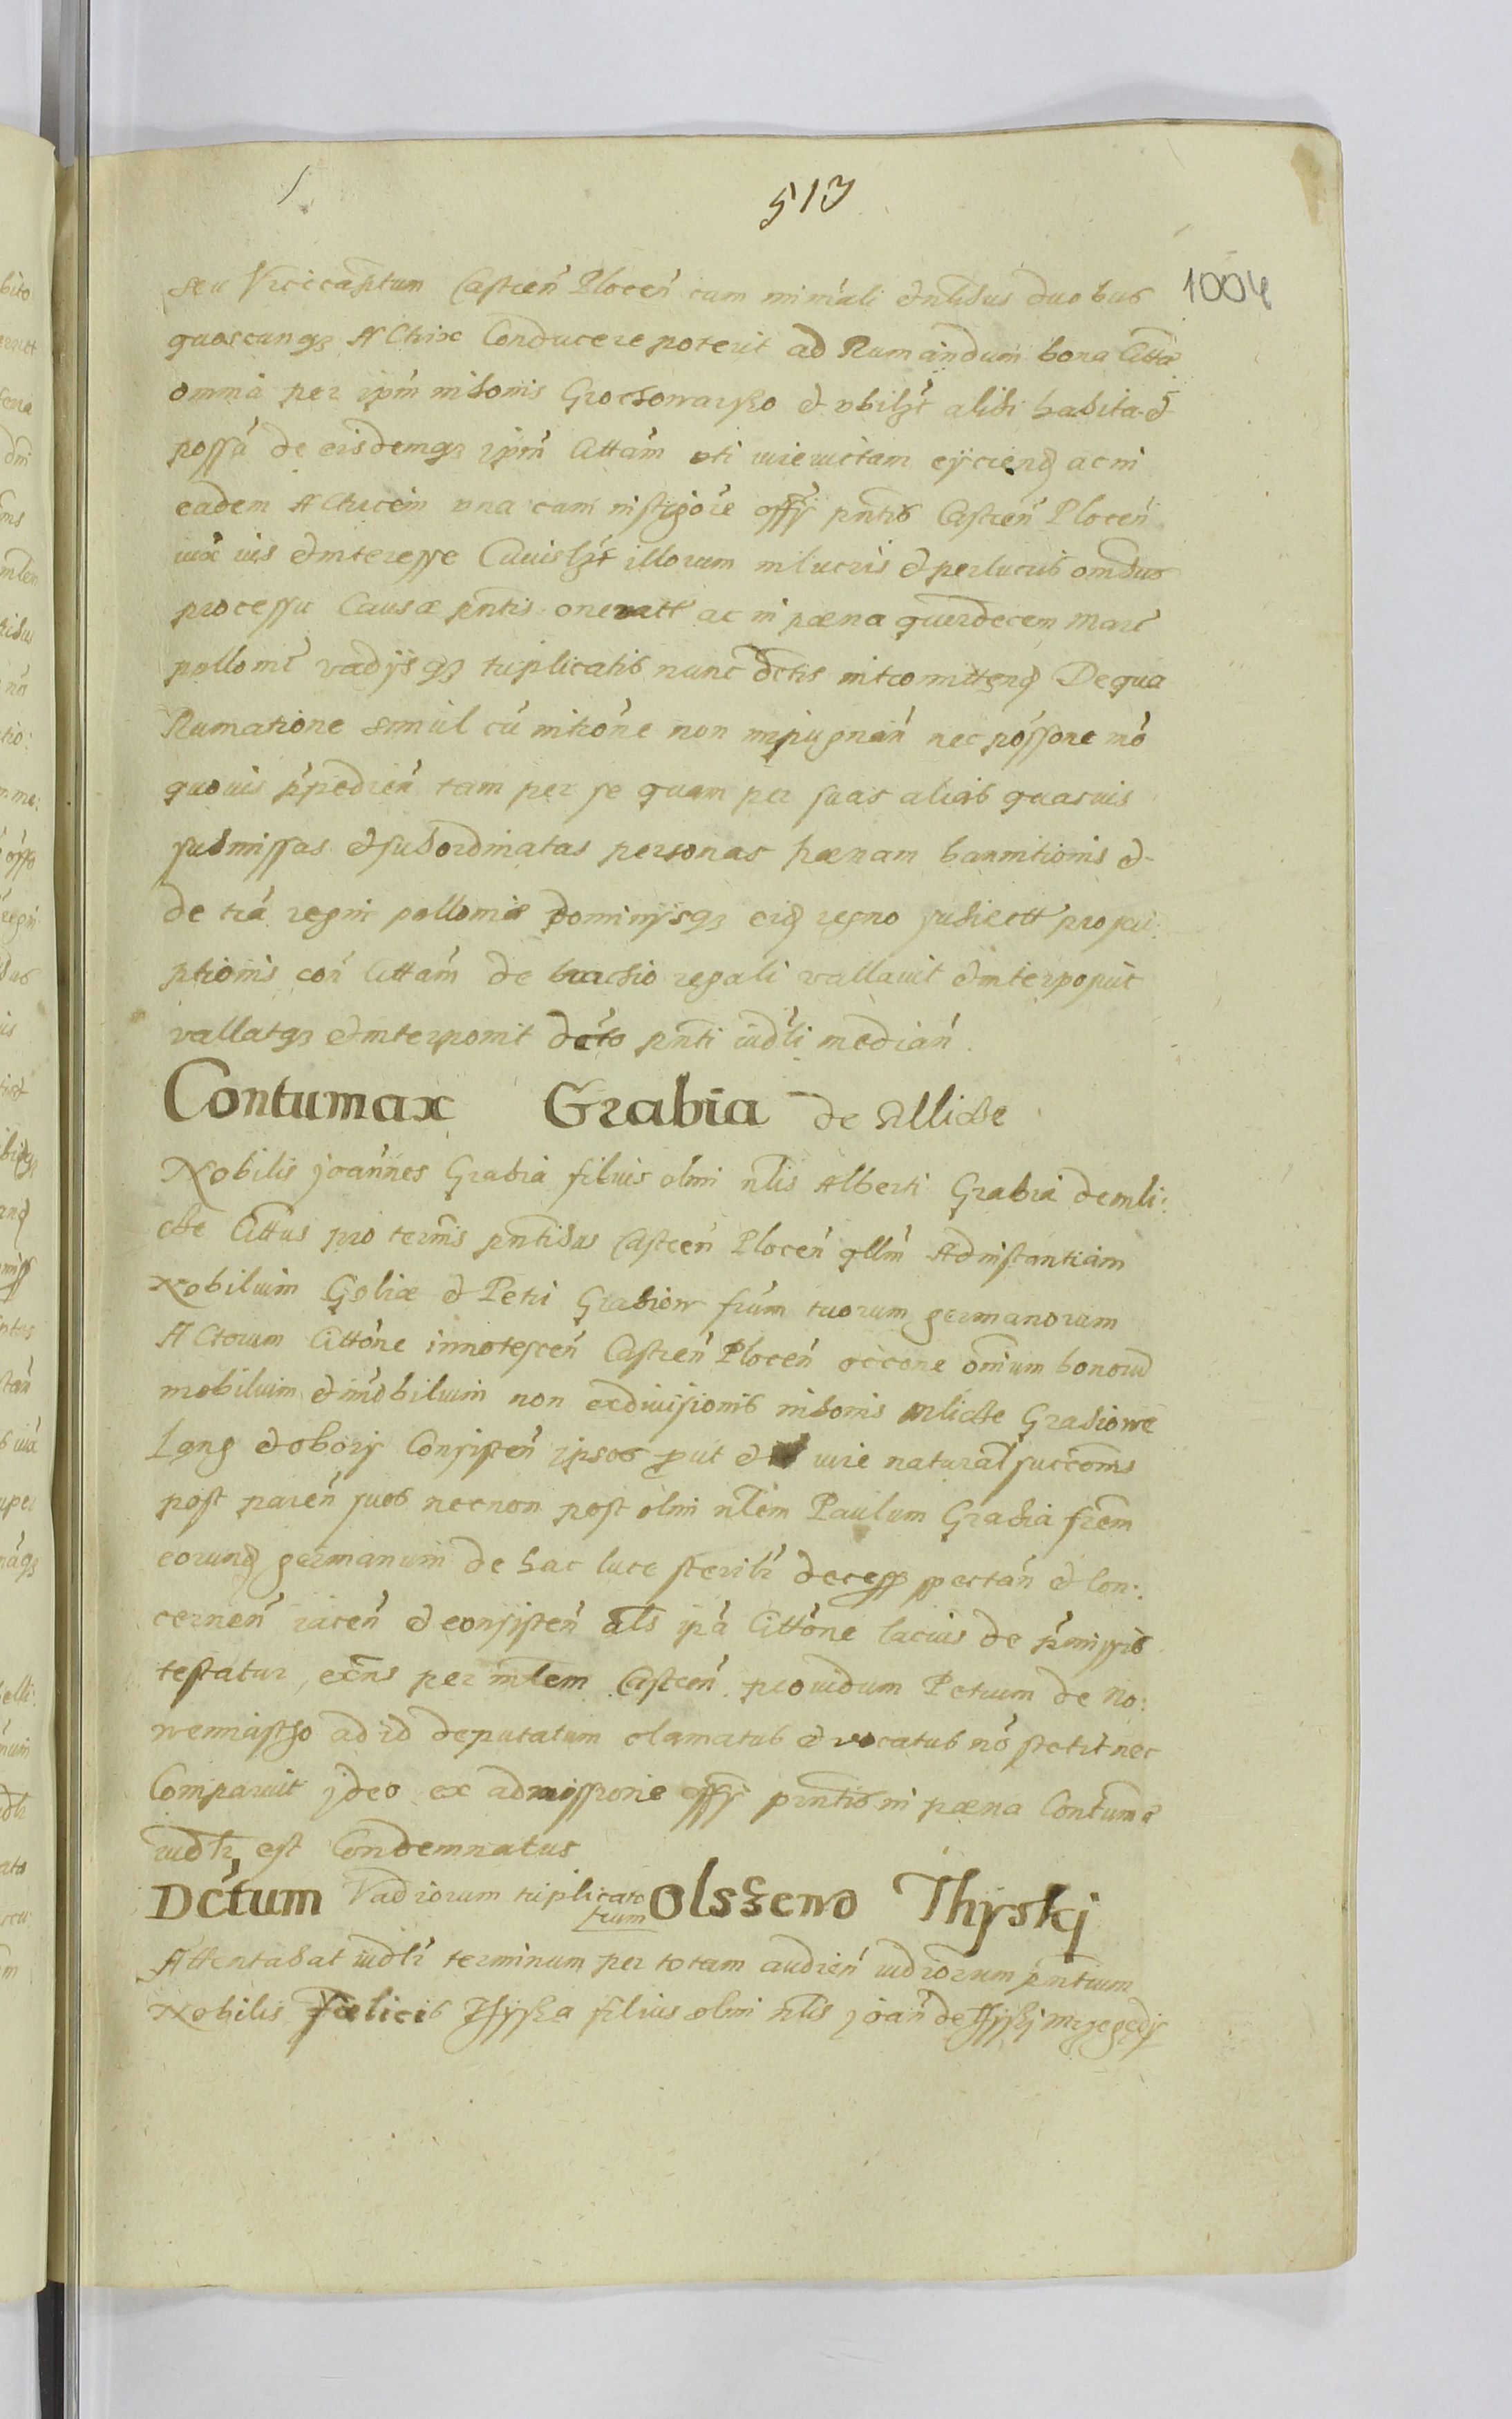 513
1004
seu Vicecapitum Castren Plocen cum min͂ali et nlibus duobus
quascunqȝ Actrix Conducere poterit ad Rumandum bona Citta
omnia per ipm in bonis Grochowarsko et ubilȝt alibi habita et
possa de eisdemqȝ ipm Cittam uti iure victam eyciend ac in
eadem Actricem una cum instigore offy pntis Castren Plocen
iux ius et interesse Cuiuslȝt illorum in lucris et perlucris omibus
processu Causæ pntis oneratt ac in pæna querdecem Marc
pollonic vadysqȝ triplicatis nunc dctis intromittend De qua
Rumatione simul cu introne non impugnan nec possone mo
quovis ipedien tam per se quam per suas alias quasvis
submissas et subordinatas personas pænam bannitionis et
de tra regni pollonia dominysqȝ eid regno subiectt proscri:
ptionis con Cittam de brachio regali vallavit et interposuit
vallatqȝ et interponit dcto pnti iudli median.
Contumax Grabia de Mliche
Nobilis Joannes Grabia filius olim nlis Alberti Grabia de mli:
che Cittus pro termis pntibus Castren Plocen qllm Ad instantiam
Nobilium Goliæ et Petri Grabiow frum tuorum germanorum
Actorum Cittone innotescen Castren Plocen occone omium bonorum
mobilium et imobilium non exdivisionis in bonis mliche Grabiowe
Lang et obory Consisten ipsos put et iure natural succoms
post paren suos necnon post olim nlem Paulum Grabia frem
eorund germanum de hac luce sterilr decess spectan et Con:
cernen iacen et consisten als ipa Cittone lacius de pmissis
testatur, excns per mlem Castren providum Petrum de No:
wemiastho ad id deputatum clamatus et vocatus no stetit nec
Comparuit Ideo ex admissione offy pntis in pæna Contuma
iudlr est Condemnatus
Dctum Vadiorum triplicato
rum Olsȝewo Thyskj
Attentabat iudlr terminum per totam audien iudiorum pntium
Nobilis Fælicis Thyska filius olim nlis Joan de Thyskj